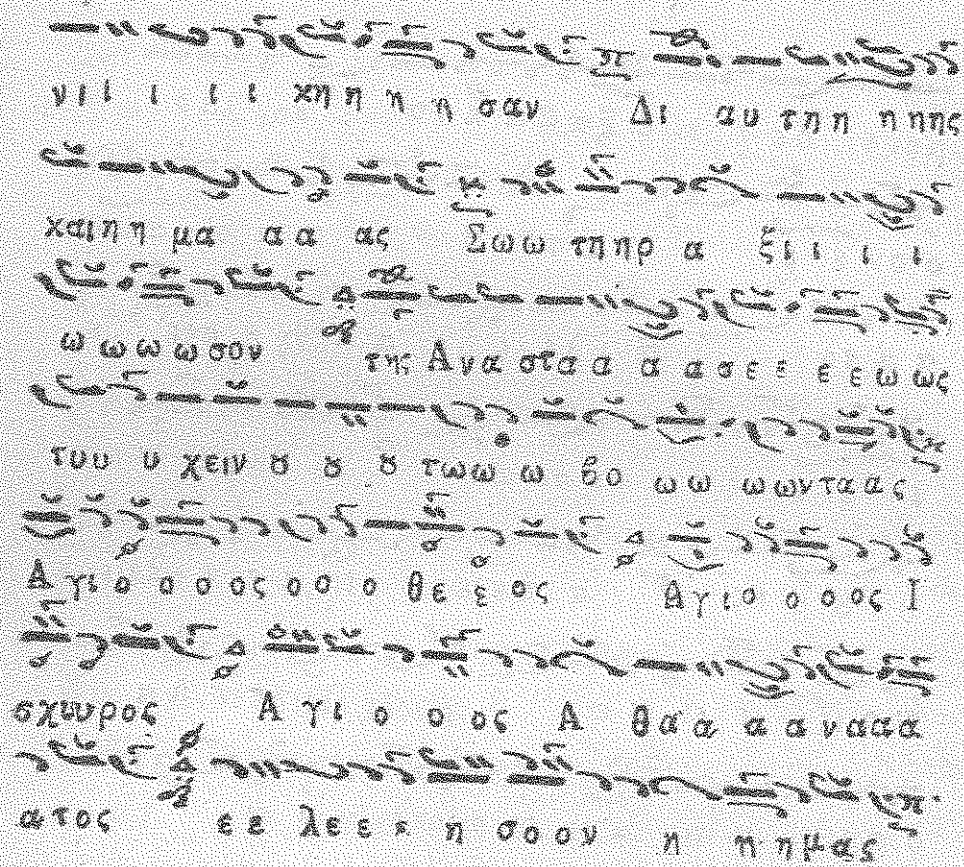 νι ι ι ι ι ι κη η η η σαν Δι αυ τη η η ηης
και η η μα α α ας Σω ω τη ηρ α ξι ι ι ι
ω ω ω ω σον της Α να στα α α α σε ε ε ε ω ως
τυ υ υ χειν ȣ ȣ ȣ τω ω ω βο ω ω ω ωντα ας
Α γι ο ο ο ος ο ο ο θε ε ος Α γι ο ο ο ος Ι
σχυυρος Α γι ο ο ος Α θα α α α να α α
α τος ε ε λε ε ε η σο ον η η η μας